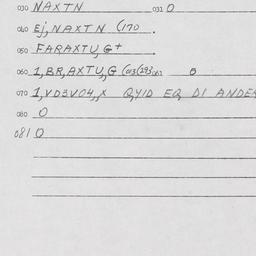 030 NAXTN 031 0
040 Ej, NAXTN (170 .
050 FARAXTU,G+ .
060 1,BR,AXTU,G (003(293 061 0
070 1,VD3V04,,X Q,YID EQ DI ANDER
080 0
081 0